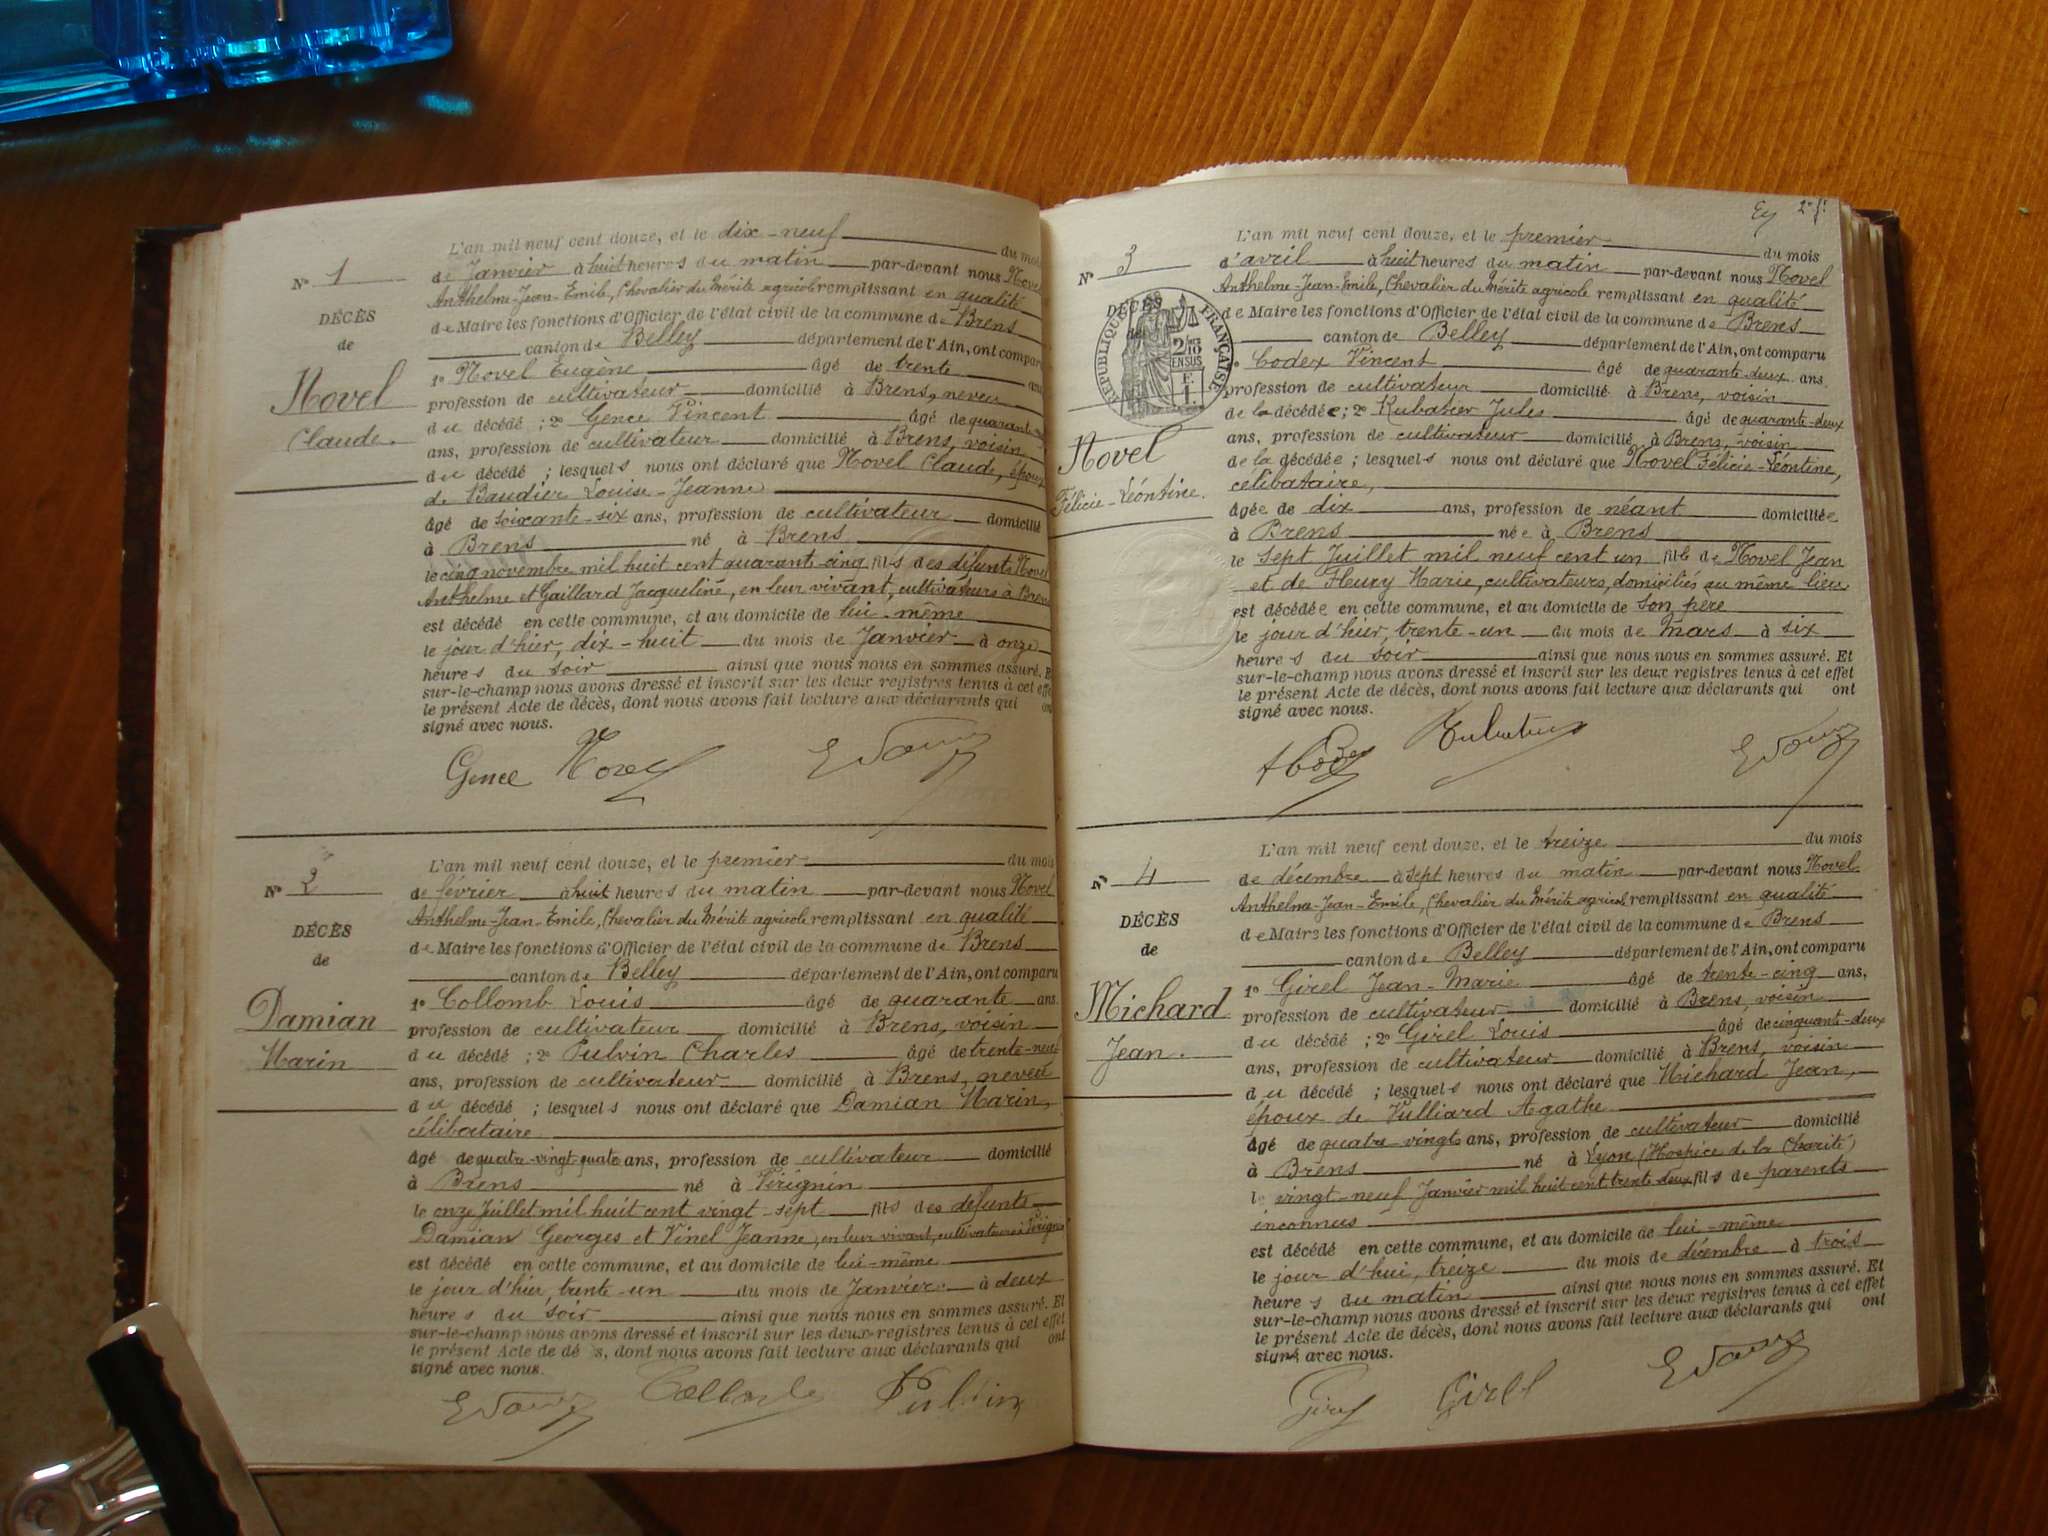 L'an mil neuf cent douze, et le dix-neuf du mois
N° 1
de Janvier à huit heures du matin par-devant nous Novel
Anthelme-Jean-Emile, Chevalier du Mérite agricole remplissant en qualité
DÉCÈS
de Maire les fonctions d'Officier de l'état civil de la commune de Brens
de
canton de Belley département de l'Ain, ont comparu
Novel
1° Novel Eugène âgé de trente ans
profession de cultivateur domicilié à Brens, neveu
Claude.
du décédé ; 2° Gence Vincent âgé de quarante
ans, profession de cultivateur domicilié à Brens, voisin
du décédé ; lesquels nous ont déclaré que Novel Claude, époux
de Baudier Louise-Jeanne
âgé de soixante-six ans, profession de cultivateur domicilié
à Brens né à Brens
le cinq novembre mil huit cent quarante-cinq fils des défunts Novel
Anthelme et Gaillard Jacqueline, en leur vivant, cultivateurs à Brens
est décédé en cette commune, et au domicile de lui-même
le jour d'hier, dix-huit du mois de Janvier à onze
heures du soir ainsi que nous nous en sommes assuré. Et
sur-le-champ nous avons dressé et inscrit sur les deux registres tenus à cet effet
le présent Acte de décès, dont nous avons fait lecture aux déclarants qui ont
signé avec nous.
Gence Novel
L'an mil neuf cent douze, et le premier du mois
N° 2
de février à huit heures du matin par-devant nous Novel
Anthelme-Jean-Emile, Chevalier du Mérite agricole remplissant en qualité
DÉCÈS
de Maire les fonctions d'Officier de l'état civil de la commune de Brens
de
canton de Belley département de l'Ain, ont comparu
Damian
1° Collomb Louis âgé de quarante ans.
profession de cultivateur domicilié à Brens, voisin
Marin
du décédé ; 2° Pulvin Charles âgé de trente-neuf
ans, profession de cultivateur domicilié à Brens, neveu
du décédé ; lesquels nous ont déclaré que Damian Marin,
célibataire
âgé de quatre-vingt quatre ans, profession de cultivateur domicilié
à Brens né à Virignin
le onze Juillet mil huit cent vingt-sept fils des défunts
Damian Georges et Vinel Jeanne, en leur vivant, cultivateurs à Virignin
est décédé en cette commune, et au domicile de lui-même
le jour d'hier, trente-un du mois de Janvier à deux
heures du soir ainsi que nous nous en sommes assuré. Et
sur-le-champ nous avons dressé et inscrit sur les deux registres tenus à cet effet
le présent Acte de dé s, dont nous avons fait lecture aux déclarants qui ont
signé avec nous.
Collomb Pulvin
2e f.
L'an mil neuf cent douze, et le premier du mois
N° 3
d'avril à huit heures du matin par-devant nous Novel
Anthelme-Jean-Emile, Chevalier du Mérite agricole remplissant en qualité
DÉCÈS
RÉPUBLIQUE FRANÇAISE
2/10 EN SUS
F. 1.
de Maire les fonctions d'Officier de l'état civil de la commune de Brens
canton de Belley département de l'Ain, ont comparu
1° Codex Vincent âgé de quarante-deux ans.
profession de cultivateur domicilié à Brens, voisin
de la décédée ; 2° Rubatier Jules âgé de quarante-deux
Novel
ans, profession de cultivateur domicilié à Brens, voisin
de la décédée ; lesquels nous ont déclaré que Novel Félicie-Léontine,
Félicie-Léontine.
célibataire,
âgée de dix ans, profession de néant domiciliée
à Brens née à Brens
le sept Juillet mil neuf cent un fille de Novel Jean
et de Fleury Marie, cultivateurs, domiciliés au même lieu
est décédée en cette commune, et au domicile de son père
le jour d'hier, trente-un du mois de mars à six
heures du soir ainsi que nous nous en sommes assuré. Et
sur-le-champ nous avons dressé et inscrit sur les deux registres tenus à cet effet
le présent Acte de décès, dont nous avons fait lecture aux déclarants qui ont
signé avec nous.
L'an mil neuf cent douze, et le treize du mois
N° 4
de décembre à sept heures du matin par-devant nous Novel
Anthelme-Jean-Emile, Chevalier du Mérite agricole remplissant en qualité
DÉCÈS
de Maire les fonctions d'Officier de l'état civil de la commune de Brens
de
canton de Belley département de l'Ain, ont comparu
Michard
1° Girel Jean-Marie âgé de trente-cinq ans,
profession de cultivateur domicilié à Brens, voisin
Jean.
du décédé ; 2° Girel Louis âgé de cinquante-deux
ans, profession de cultivateur domicilié à Brens, voisin
du décédé ; lesquels nous ont déclaré que Michard Jean,
époux de Vulliard Agathe
âgé de quatre-vingts ans, profession de cultivateur domicilié
à Brens né à Lyon (Hospice de la Charité)
le vingt-neuf Janvier mil huit cent trente-deux fils de parents
inconnus
est décédé en cette commune, et au domicile de lui-même
le jour d'hui, treize du mois de décembre à trois
heures du matin ainsi que nous nous en sommes assuré. Et
sur-le-champ nous avons dressé et inscrit sur les deux registres tenus à cet effet
le présent Acte de décès, dont nous avons fait lecture aux déclarants qui ont
signé avec nous.
Girel Girel